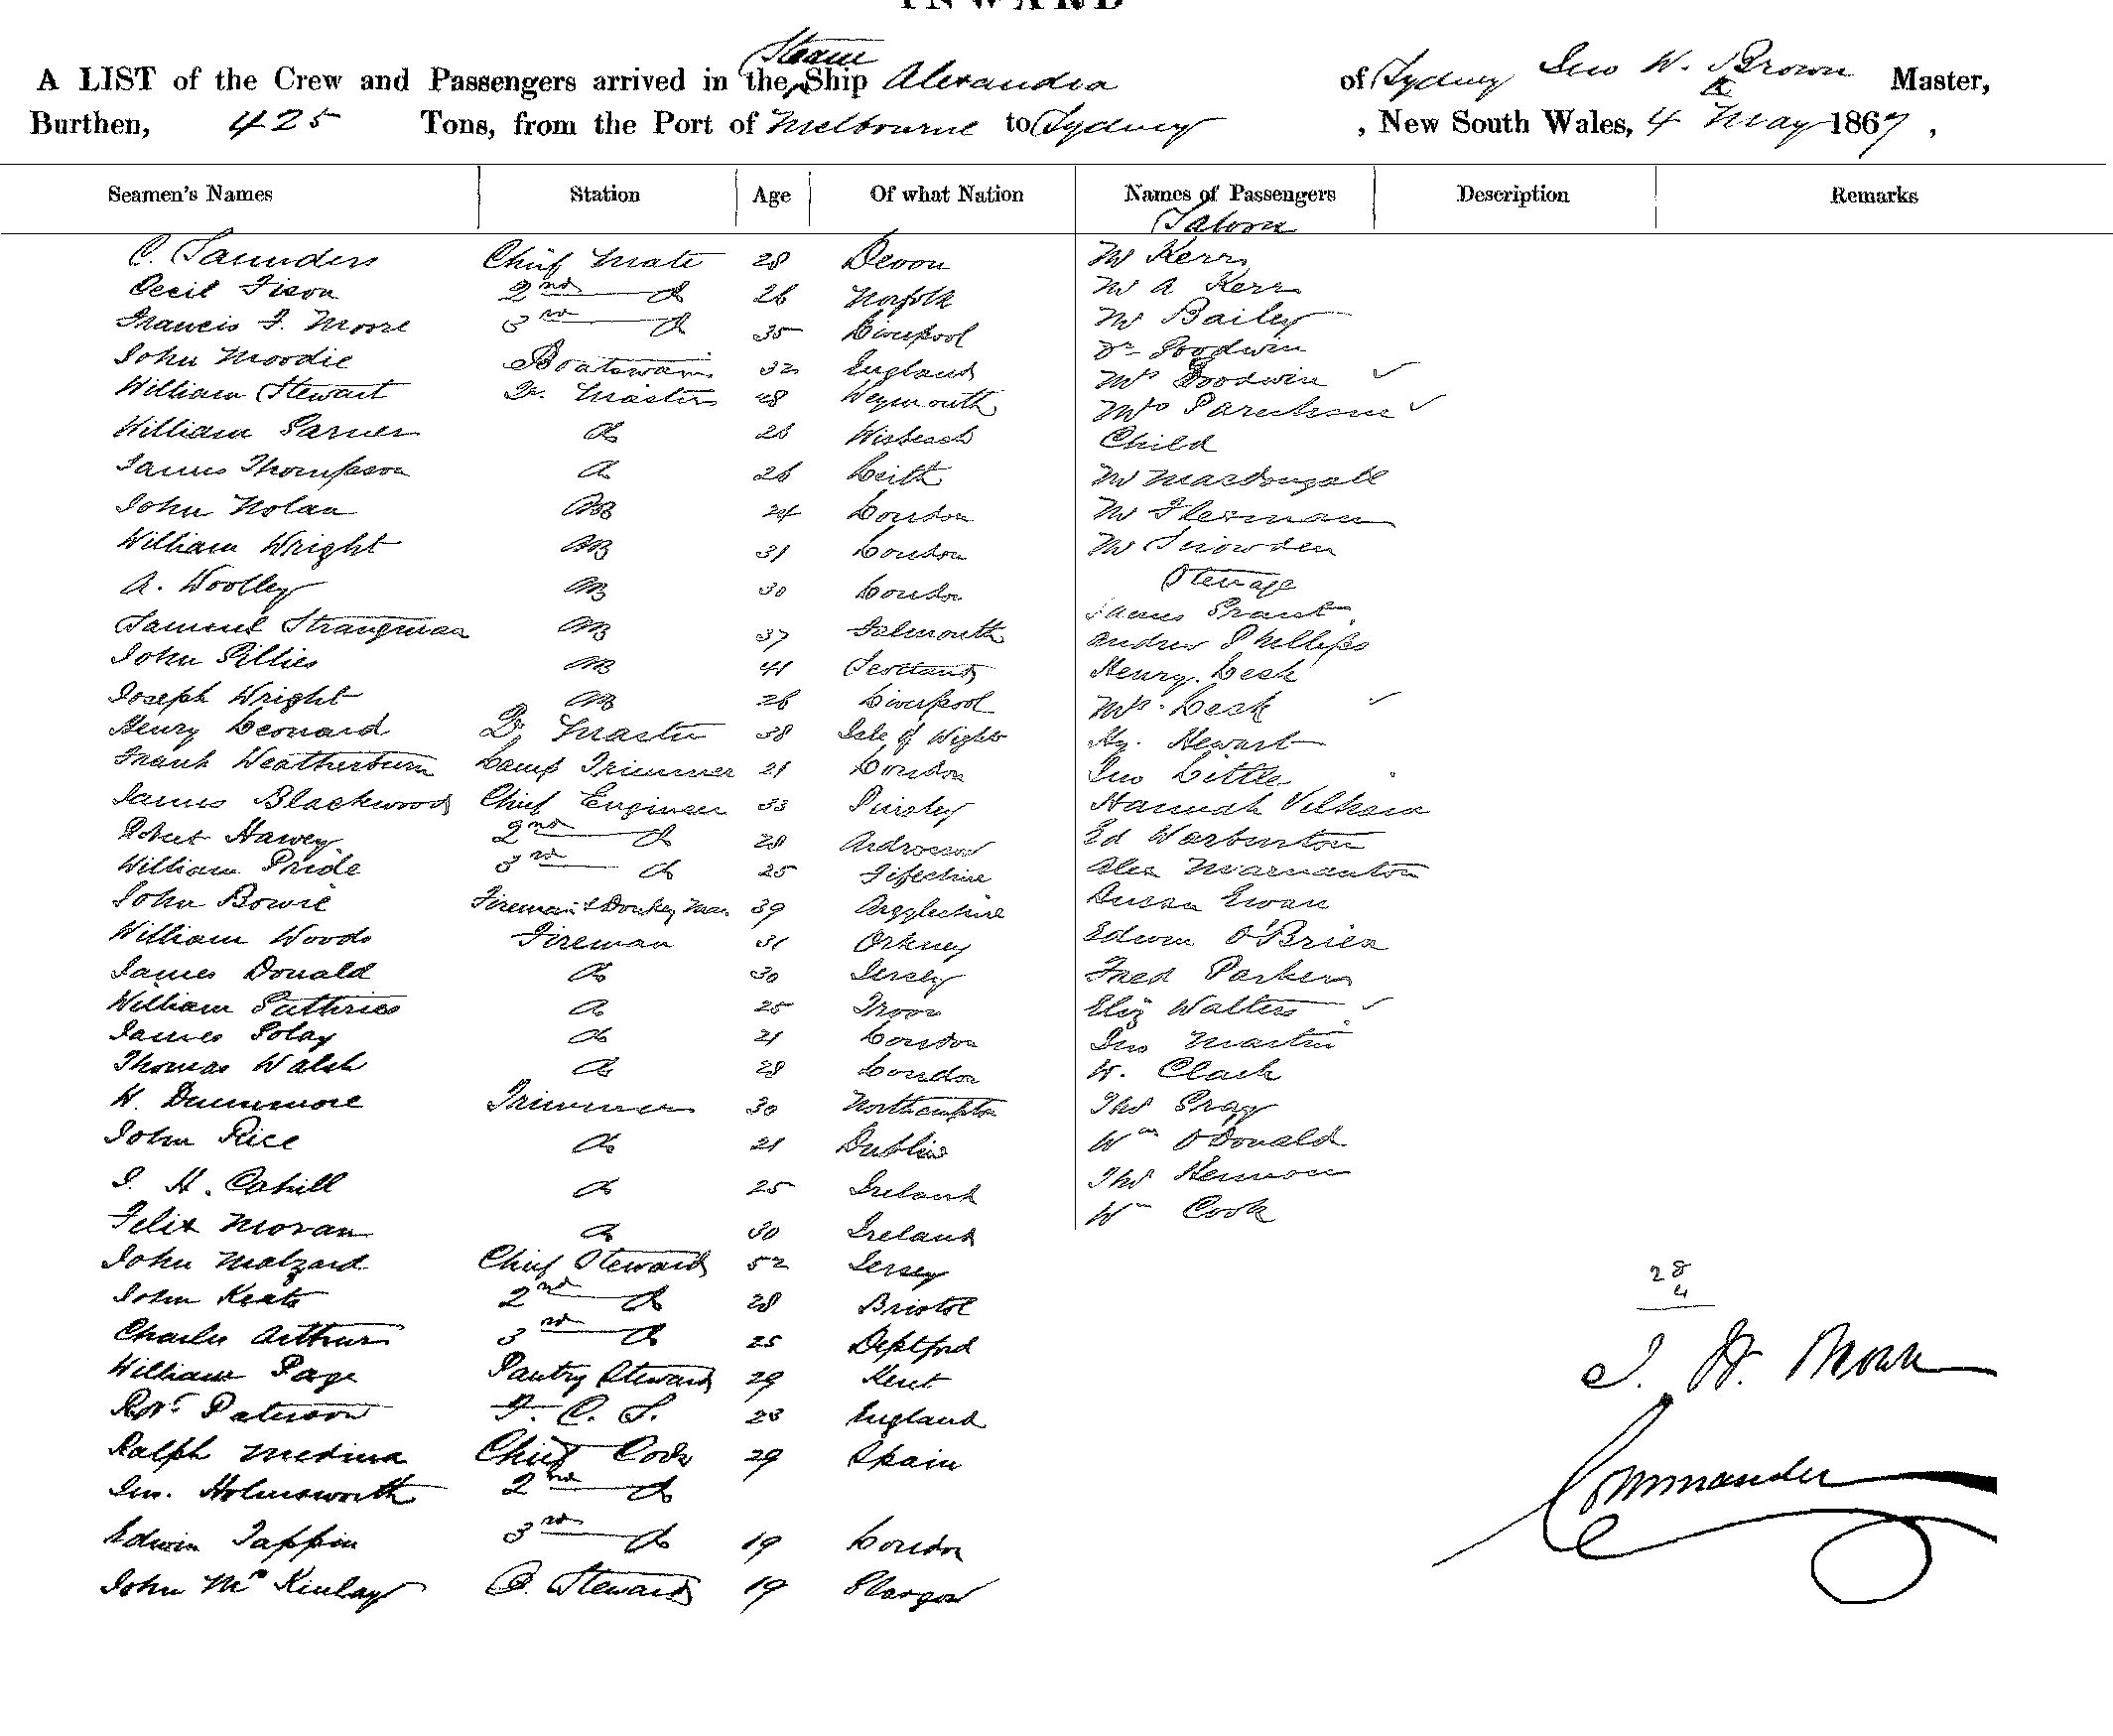 INWARD
Steam
A LIST of the Crew and Passengers arrived in the Ship Alexandra of Sydney Jno W. Brown Master,
Burthen, 425 Tons, from the Port of Melbourne to Sydney, New South Wales, 4 May 1867,
Seamen's Names Station Age Of what Nation Names of Passengers Description Remarks
Saloon
C. Saunders Chief Mate 28 Devon Mr Kerr
Cecil Fison 2nd do 26 Norfolk Mr A Kerr
Francis F. Moore 3rd do 35 Liverpool Mr Bailey
John Moodie Boatswain 32 England Dr Goodwin
William Stewart Qr. Master 28 Weymouth Mrs Goodwin
William Garner do 26 Wisbeach Mrs
James Thompson do 26 Leith Child
John Nolan AB 24 London Mr MacDougall
William Wright AB 31 London Mr
A. Woolley AB 30 London Mr Snowden
Steerage
Samuel Strangman AB 37 Falmouth James Grant
John Gillies AB 41 Scotland Andrew Phillips
Joseph Wright AB 26 Liverpool Henry Leck
Henry Leonard Q Master 38 Isle of Wight Mrs. Leck
Frank Weatherburn Lamp Trimmer 21 London Hy. Stewart
James Blackwood Chief Engineer 33 Jno Little
Robert Harvey 2nd do 28 Hannah
William Pride 3rd do 25 Fifeshire Ed Warburton
John Bowie Fireman & Donkey Man 39 Argyleshire Alex
William Woods Fireman 31 Orkney Susan Ewan
James Donald do 30 Jersey Edwin O'Brien
William Guthries do 25 Troon Fred Parker
James Golay do 21 London Eliz Walters
Thomas Walsh do 28 London Jno Martin
W. Dunnmore Trimmer 30 Northampton W. Clack
John Rice do 21 Dublin Thos Gray
J. H. Cahill do 25 Ireland Wm O'Donald
Felix Moran do 30 Ireland Thos
John Malzard Chief Steward 52 Jersey Wm Cook
John Keats 2nd do 28 Bristol
Charles Arthur 3rd do 25 Deptford
William Page Pantry Steward 29 Kent
Robt Paterson F. C. S. 23 England
Ralph Medina Chief Cook 29 Spain
Jno. Holmsworth 2nd do
Edwin Tappin 3rd do 19 London
John McKinlay S. Steward 19 Glasgow
28
4
J. W. Brown
Commander